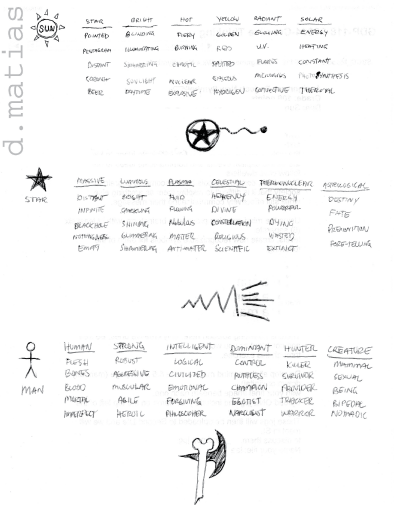 d.matias
SUN
STAR BRIGHT HOT YELLOW RADIANT SOLAR
POINTED BLINDING FIERY GOLDEN GLOWING ENERGY
PENTAGRAM ILLUMINATING BURNING RED U.V. HEATING
DISTANT SHIMMERING CONSTANT
SUNLIGHT NUCLEAR PHOTOSYNTHESIS
DAYTIME EXPLOSIVE HYDROGEN THERMAL
STAR
MASSIVE LUMINOUS PLASMA CELESTIAL THERMONUCLEAR ASTROLOGICAL
DISTANT BRIGHT FLUID HEAVENLY ENERGY DESTINY
INFINITE FLOWING DIVINE POWERFUL FATE
BLACKHOLE SHINING NEBULOUS CONSTELLATION DYING
NOTHINGNESS GLIMMERING MATTER RELIGIOUS WASTED
EMPTY SHIMMERING ANTIMATTER SCIENTIFIC EXTINCT FORETELLING
MAN
HUMAN STRONG INTELLIGENT DOMINANT HUNTER CREATURE
FLESH ROBUST LOGICAL CONTROL KILLER MAMMAL
BONES AGGRESSIVE CIVILIZED RUTHLESS SURVIVOR SEXUAL
BLOOD MUSCULAR EMOTIONAL CHAMPION PROVIDER BEING
MORTAL AGILE FORGIVING EGOTIST TRACKER BIPEDAL
IMPERFECT HEROIC PHILOSOPHER NARCISSIST WARRIOR NOMADIC